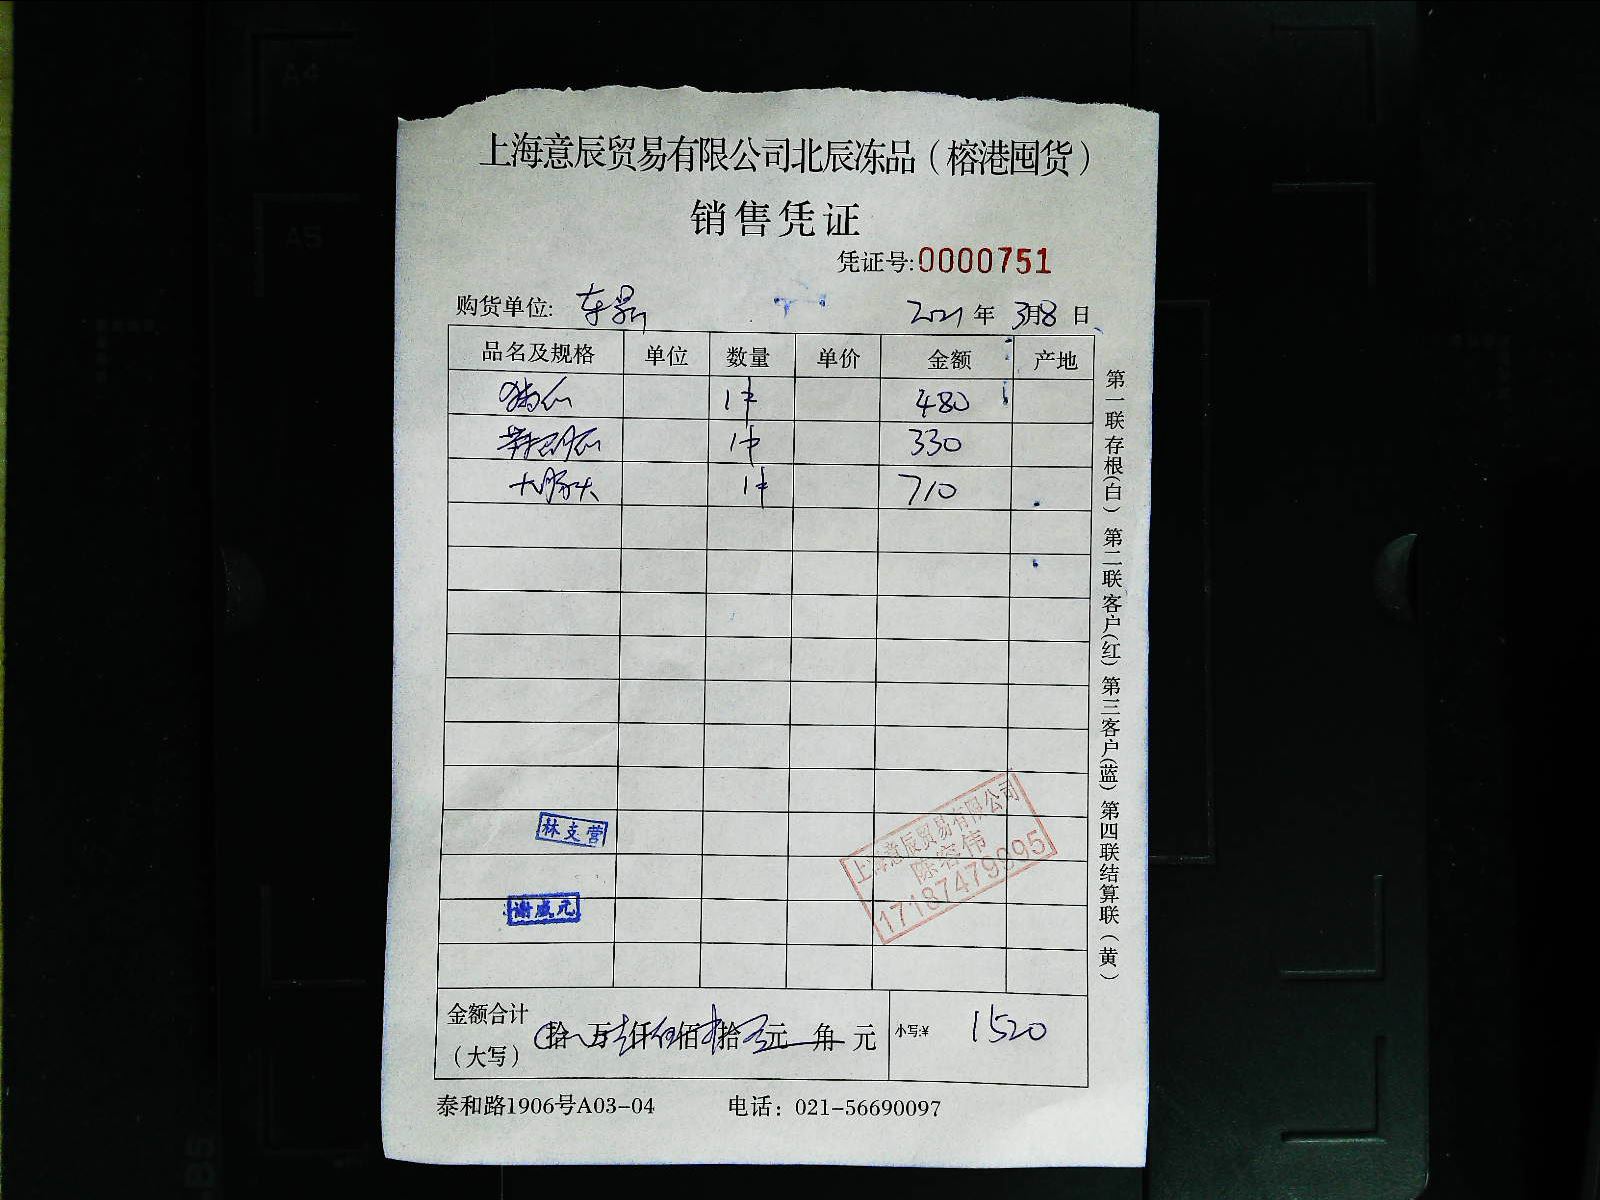 A4
A5
B5
上海意辰贸易有限公司北辰冻品（榕港囤货）
销售凭证
凭证号:0000751
购货单位:
2021年3月8日
品名及规格 单位 数量 单价 金额 产地
1件 480
1件 330
1件 710
林支营
谢盛元
上海意辰贸易有限公司
陈容伟
17187479095
金额合计（大写） 拾 万 仟 佰 拾 元 角 元 小写:¥ 1520
泰和路1906号A03-04 电话：021-56690097
第一联存根（白） 第二联客户（红） 第三客户（蓝） 第四联结算联（黄）